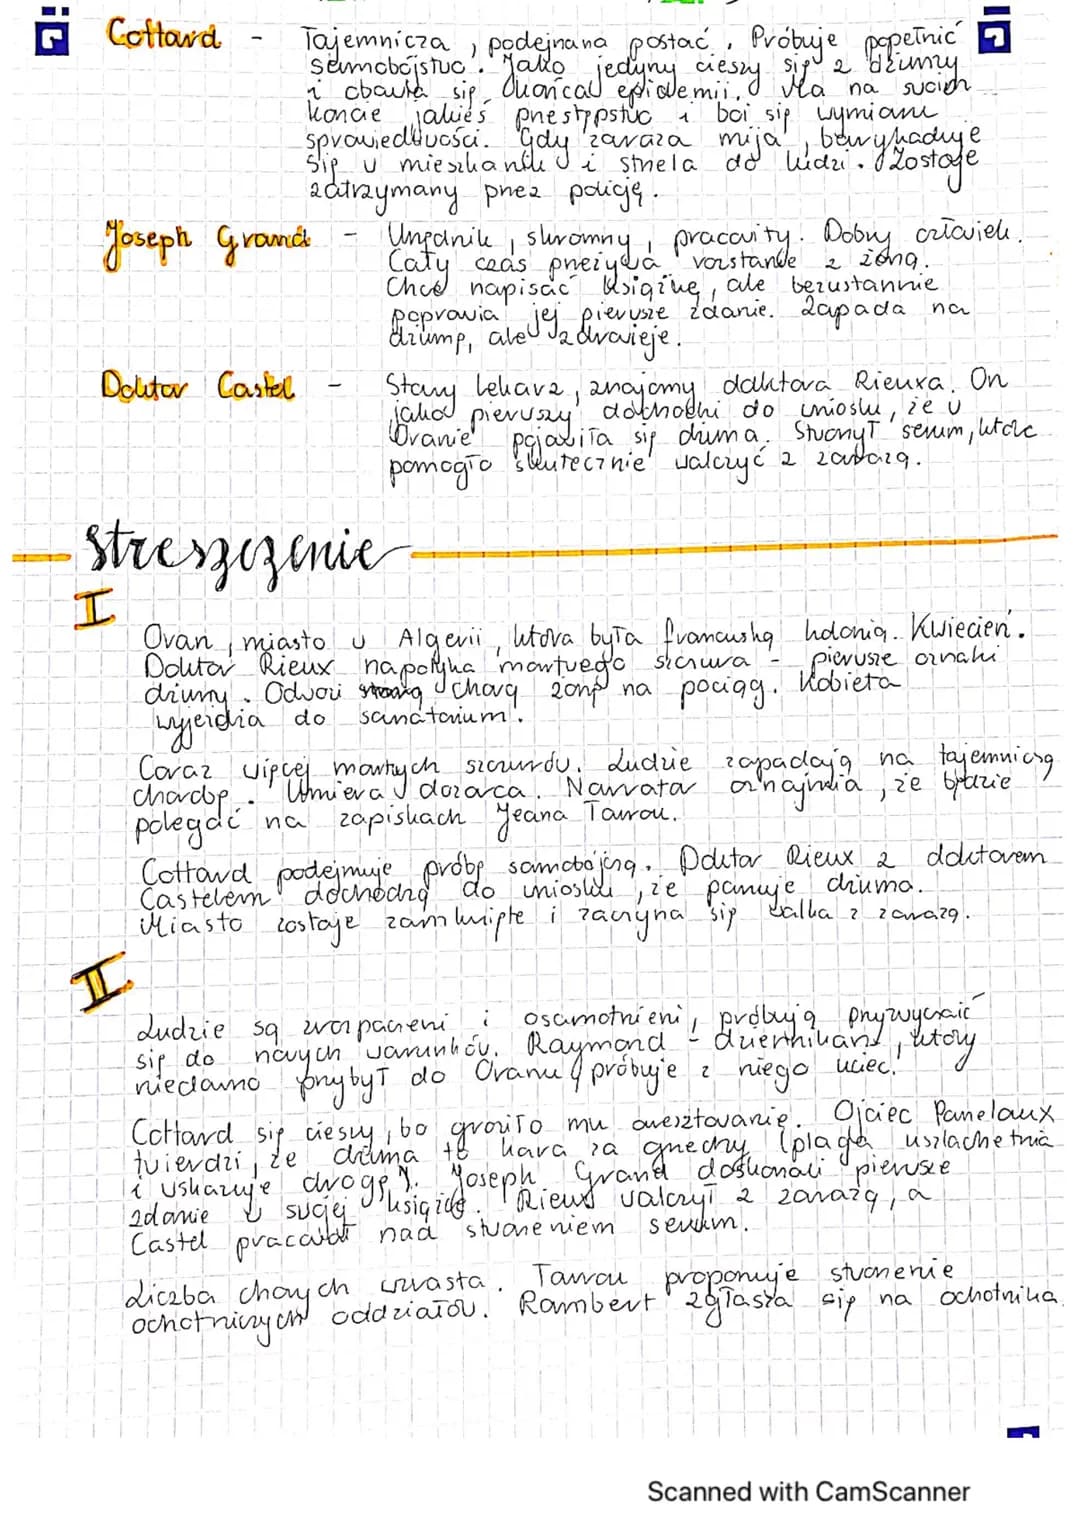 Cottard - Tajemnicza, podejrzana postać. Próbuje popełnić
samobójstwo. Jako jedyny cieszy się z dżumy
i obawia się końca epidemii. Ma na swoim
koncie jakieś przestępstwo i boi się wymiaru
sprawiedliwości. Gdy zaraza mija, zabarykaduje
się w mieszkaniu i strzela do ludzi. Zostaje
zatrzymany przez policję.
Joseph Grand - Urzędnik, skromny, pracowity. Dobry człowiek.
Cały czas przeżywa rozstanie z żoną.
Chce napisać książkę, ale bezustannie
poprawia jej pierwsze zdanie. Zapada na
dżumę, ale zdrowieje.
Doktor Castel - Stary lekarz, znajomy doktora Rieuxa. On
jako pierwszy dochodzi do wniosku, że w
Oranie pojawiła się dżuma. Stworzył serum, które
pomogło skutecznie walczyć z zarazą.
Streszczenie
I
Oran, miasto w Algerii, która była francuską kolonią. Kwiecień.
Doktor Rieux napotyka martwego szczura - pierwsze oznaki
dżumy. Odwozi chorą żonę na pociąg. Kobieta
wyjeżdża do sanatorium.
Coraz więcej martwych szczurów. Ludzie zapadają na tajemniczą
chorobę. Umiera dozorca. Narrator oznajmia, że będzie
polegać na zapiskach Jeana Tarrou.
Cottard podejmuje próbę samobójczą. Doktor Rieux z doktorem
Castelem dochodzą do wniosku, że panuje dżuma.
Miasto zostaje zamknięte i zaczyna się walka z zarazą.
II
Ludzie są zrozpaczeni i osamotnieni, próbują przyzwyczaić
się do nowych warunków. Raymond - dziennikarz, który
niedawno przybył do Oranu próbuje z niego uciec.
Cottard się cieszy, bo groziło mu aresztowanie. Ojciec Paneloux
twierdzi, że dżuma to kara za grzechy (plaga uszlachetnia
i wskazuje drogę). Joseph Grand doskonali pierwsze
zdanie w swojej książce. Rieux walczył z zarazą, a
Castel pracował nad stworzeniem serum.
Liczba chorych wzrasta. Tarrou proponuje stworzenie
ochotniczych oddziałów. Rambert zgłasza się na ochotnika
Scanned with CamScanner